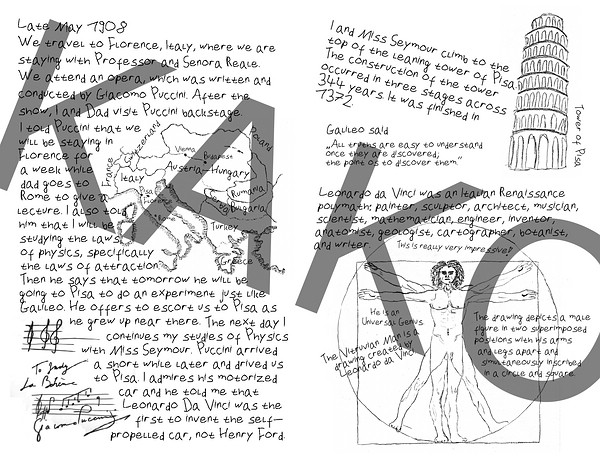 Late May 1908
We travel to Florence, Italy, where we are
staying with Professor and Senora Reale.
We attend an opera, which was written and
conducted by Giacomo Puccini. After the
show, I and Dad visit Puccini backstage.
I told Puccini that we
will be staying in
Florence for
a week while
dad goes to
Rome to give a
lecture. I also told
him that I will be
studying the laws
of physics, specifically
the laws of attraction.
Then he says that tomorrow he will be
going to Pisa to do an experiment just like
Galileo. He offers to escort us to Pisa as
he grew up near there. The next day I
continue my studies of Physics
with Miss Seymour. Puccini arrived
a short while later and drived us
to Pisa. I admires his motorized
car and he told me that
Leonardo Da Vinci was the
first to invent the self-
propelled car, not Henry Ford.
France
Switzerland
Italy
Vienna
Budapest
Austria-Hungary
Poland
Rumania
Bulgaria
Turkey
Greece
Pisa
Florence
To Indy
La Bohème
Giacomo Puccini
I and Miss Seymour climb to the
top of the leaning tower of Pisa.
The construction of the tower
occurred in three stages across
344 years. It was finished in
1372.
Tower of Pisa
Galileo said
„All truths are easy to understand
once they are discovered;
the point is to discover them.“
Leonardo da Vinci was an Italian Renaissance
polymath: painter, sculptor, architect, musician,
scientist, mathematician, engineer, inventor,
anatomist, geologist, cartographer, botanist,
and writer.
This is really very impressive!
He is an
Universal Genius
The Vitruvian Man is a
drawing created by
Leonardo da Vinci
The drawing depicts a male
figure in two superimposed
positions with his arms
and legs apart and
simultaneously inscribed
in a circle and square.